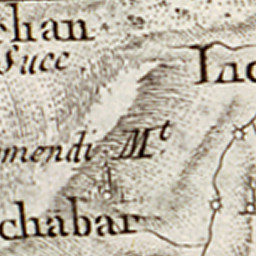 han
Succ.
Inc
mendi M.t
chabar